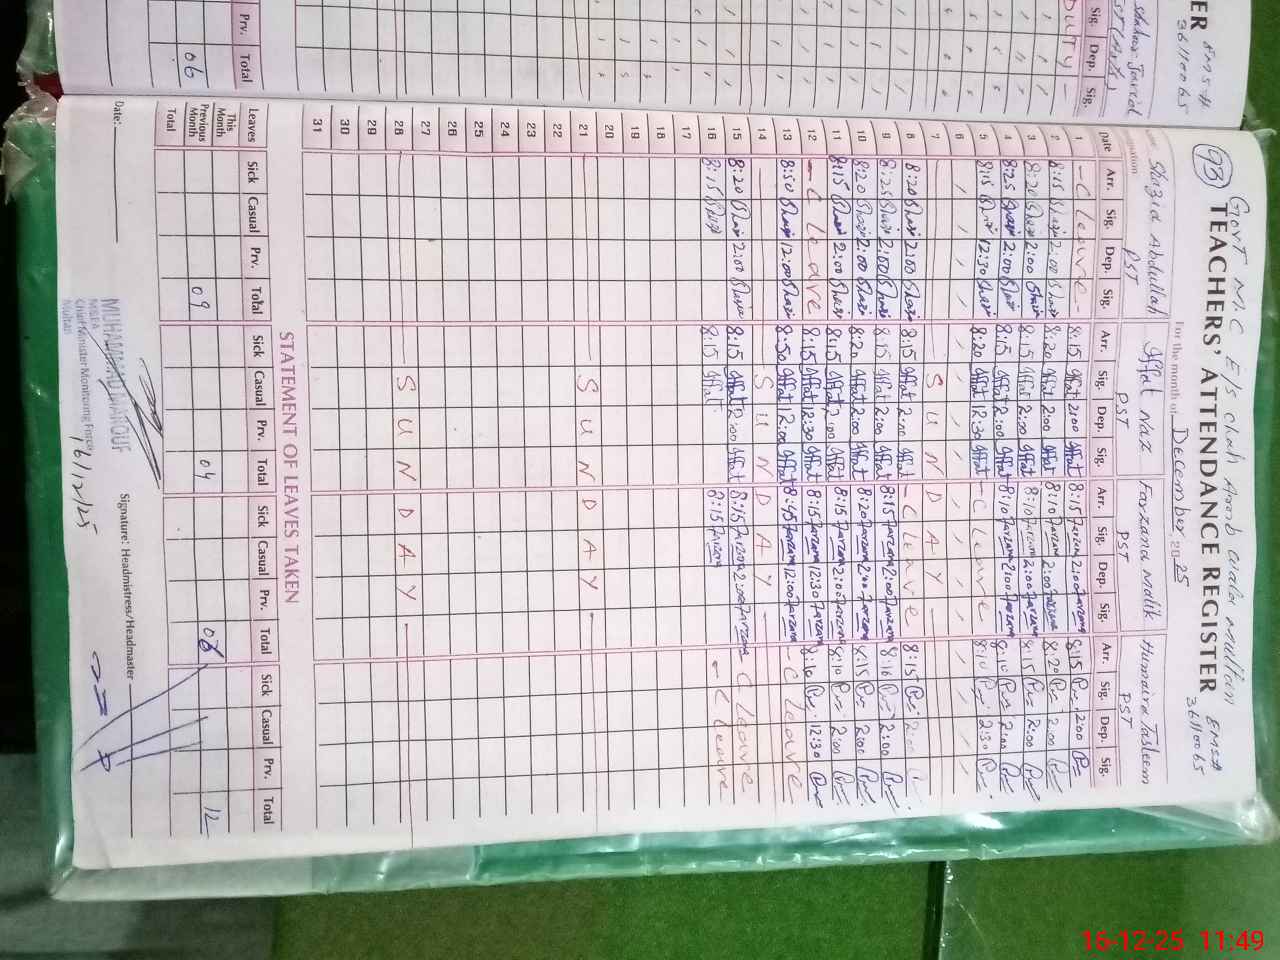 93
GOVT M.C E/S chah Arab wala Multan EMS# 36110065
TEACHERS' ATTENDANCE REGISTER
For the month of December 2025
Shazia Abdullah Iffat Naz Farzana Malik Humaira Tasleem
PST PST PST PST
Date Arr. Sig. Dep. Sig. Arr. Sig. Dep. Sig. Arr. Sig. Dep. Sig. Arr. Sig. Dep. Sig.
1 - C Leave - 8:15 Iffat 2:00 Iffat 8:15 Farzana 2:00 Farzana 8:15 2:00
2 8:15 Shazi 2:00 Shazi 8:20 Iffat 2:00 Iffat 8:10 Farzana 2:00 Farzana 8:20 2:00
3 8:20 Shazi 2:00 Shazi 8:15 Iffat 2:00 Iffat 8:10 Farzana 2:00 Farzana 8:15 2:00
4 8:25 Shazi 2:00 Shazi 8:15 Iffat 2:00 Iffat 8:10 Farzana 2:00 Farzana 8:10 2:00
5 8:15 Shazi 12:30 Shazi 8:20 Iffat 12:30 Iffat - C Leave 8:10 2:30
6
7 SUNDAY
8 8:20 Shazi 2:00 Shazi 8:15 Iffat 2:00 Iffat - C Leave 8:15 2:00
9 8:25 Shazi 2:00 Shazi 8:15 Iffat 2:00 Iffat 8:15 Farzana 2:00 Farzana 8:16 2:00
10 8:20 Shazi 2:00 Shazi 8:20 Iffat 2:00 Iffat 8:20 Farzana 2:00 Farzana 8:15 2:00
11 8:15 Shazi 2:00 Shazi 8:15 Iffat 2:00 Iffat 8:15 Farzana 2:00 Farzana 8:10 2:00
12 - C Leave 8:15 Iffat 12:30 Iffat 8:15 Farzana 12:30 Farzana 8:10 12:30
13 8:50 Shazi 12:00 Shazi 8:50 Iffat 12:00 Iffat 8:45 Farzana 12:00 Farzana - C Leave
14 SUNDAY
15 8:20 Shazi 2:00 Shazi 8:15 Iffat 2:00 Iffat 8:15 Farzana 2:00 Farzana C Leave
16 8:15 Shazi 8:15 Iffat 8:15 Farzana - C Leave
17
18
19
20
21 SUNDAY
22
23
24
25
26
27
28 SUNDAY
29
30
31
STATEMENT OF LEAVES TAKEN
Leaves Sick Casual Prv. Total Sick Casual Prv. Total Sick Casual Prv. Total Sick Casual Prv. Total
This Month
Previous Month 09 04 08 12
Total
MUHAMMAD MAROUF
MEA
Chief Minister Monitoring Force
Multan
16/12/25
Date: Signature: Headmistress/Headmaster
EMS# 36110065
Sig. Dep. Sig.
DUTY
Prv. Total
06
16-12-25 11:49